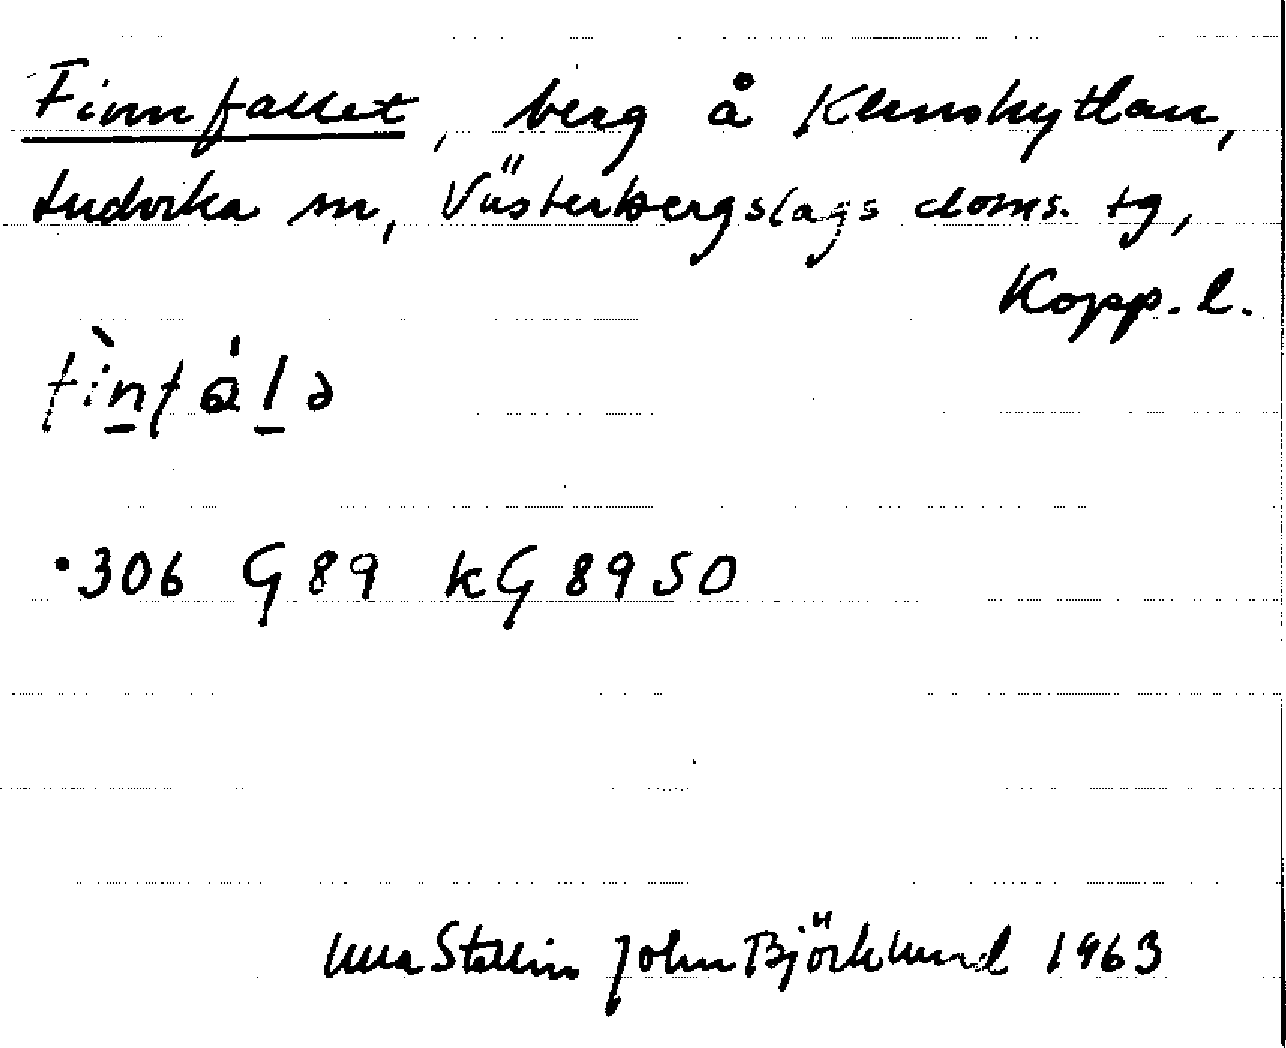 Finnfallet, berg å Klenshyttan,
Ludvika sn, Västerbergslags doms. tg,
Kopp. l.
fìnfál ə
• 306 G 89 kG 8950
Ulla Stallin John Björklund 1963